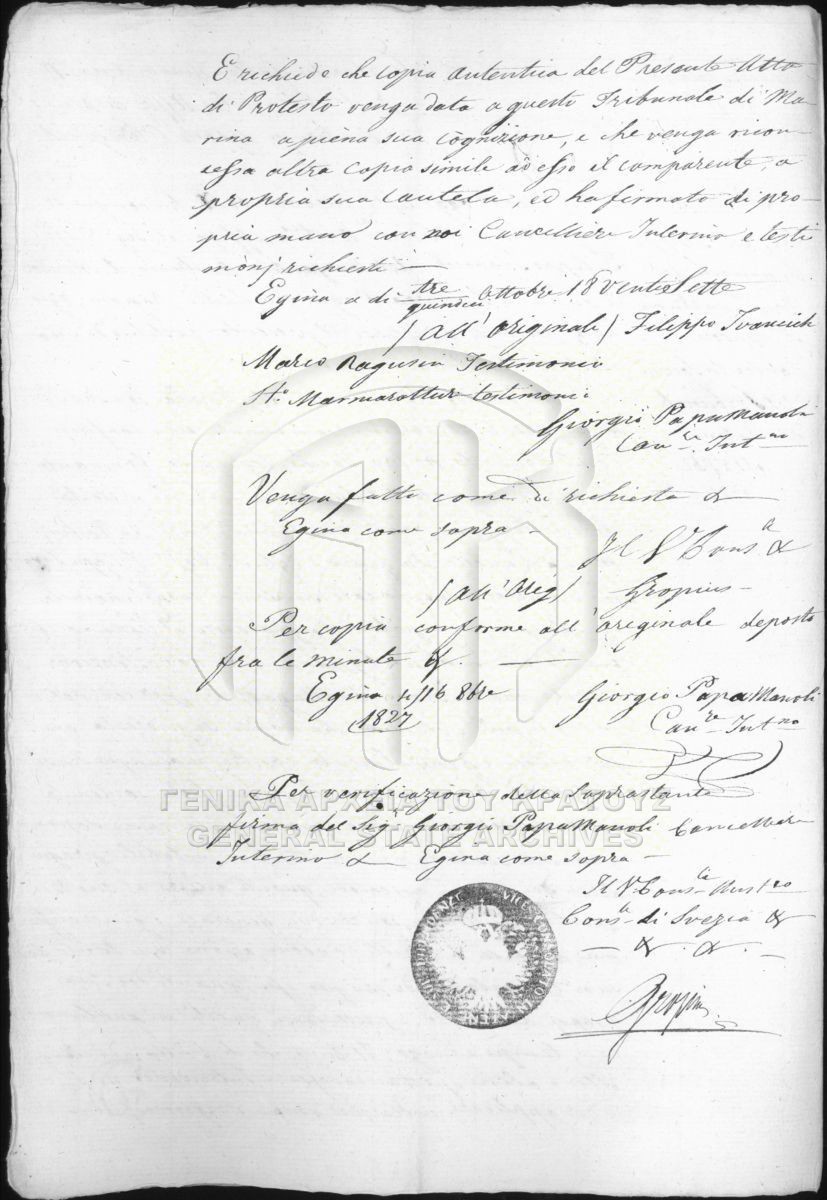 E richiedo che copia autentica del Presente Atto
di Protesto venga data a questo Tribunale di Ma-
rina a piena sua cognizione, e che venga ricon-
cessa altra copia simile ad esso il comparente, a
propria sua cautela, ed ha firmato di pro-
pria mano con noi Cancelliere Interino e testi
monj richiesti —
Egina a di tre/quindici Ottobre 18ventisette
(All' originale) Filippo Ivancich
Marco Ragusin Testimonio
Testimonio
Giorgio PapaManoli
Canre Intno
Venga fatto come di richiesta &
Egina come sopra —
Il V Consle &
(All' Orig) Gropius —
Per copia conforme all' originale deposto
fra le minute &. —
Egina 4/16 8bre Giorgio PapaManoli
1827 Canre Intno
ΓΕΝΙΚΑ ΑΡΧΕΙΑ ΤΟΥ ΚΡΑΤΟΥΣ
GENERAL STATE ARCHIVES
Per verificazione della Soprastante
firma del Sigr Giorgio PapaManoli Cancelliere
Interino & Egina come sopra —
Il V. Consle Austro
Consle di Svezia &
— & . & . —
Gropius